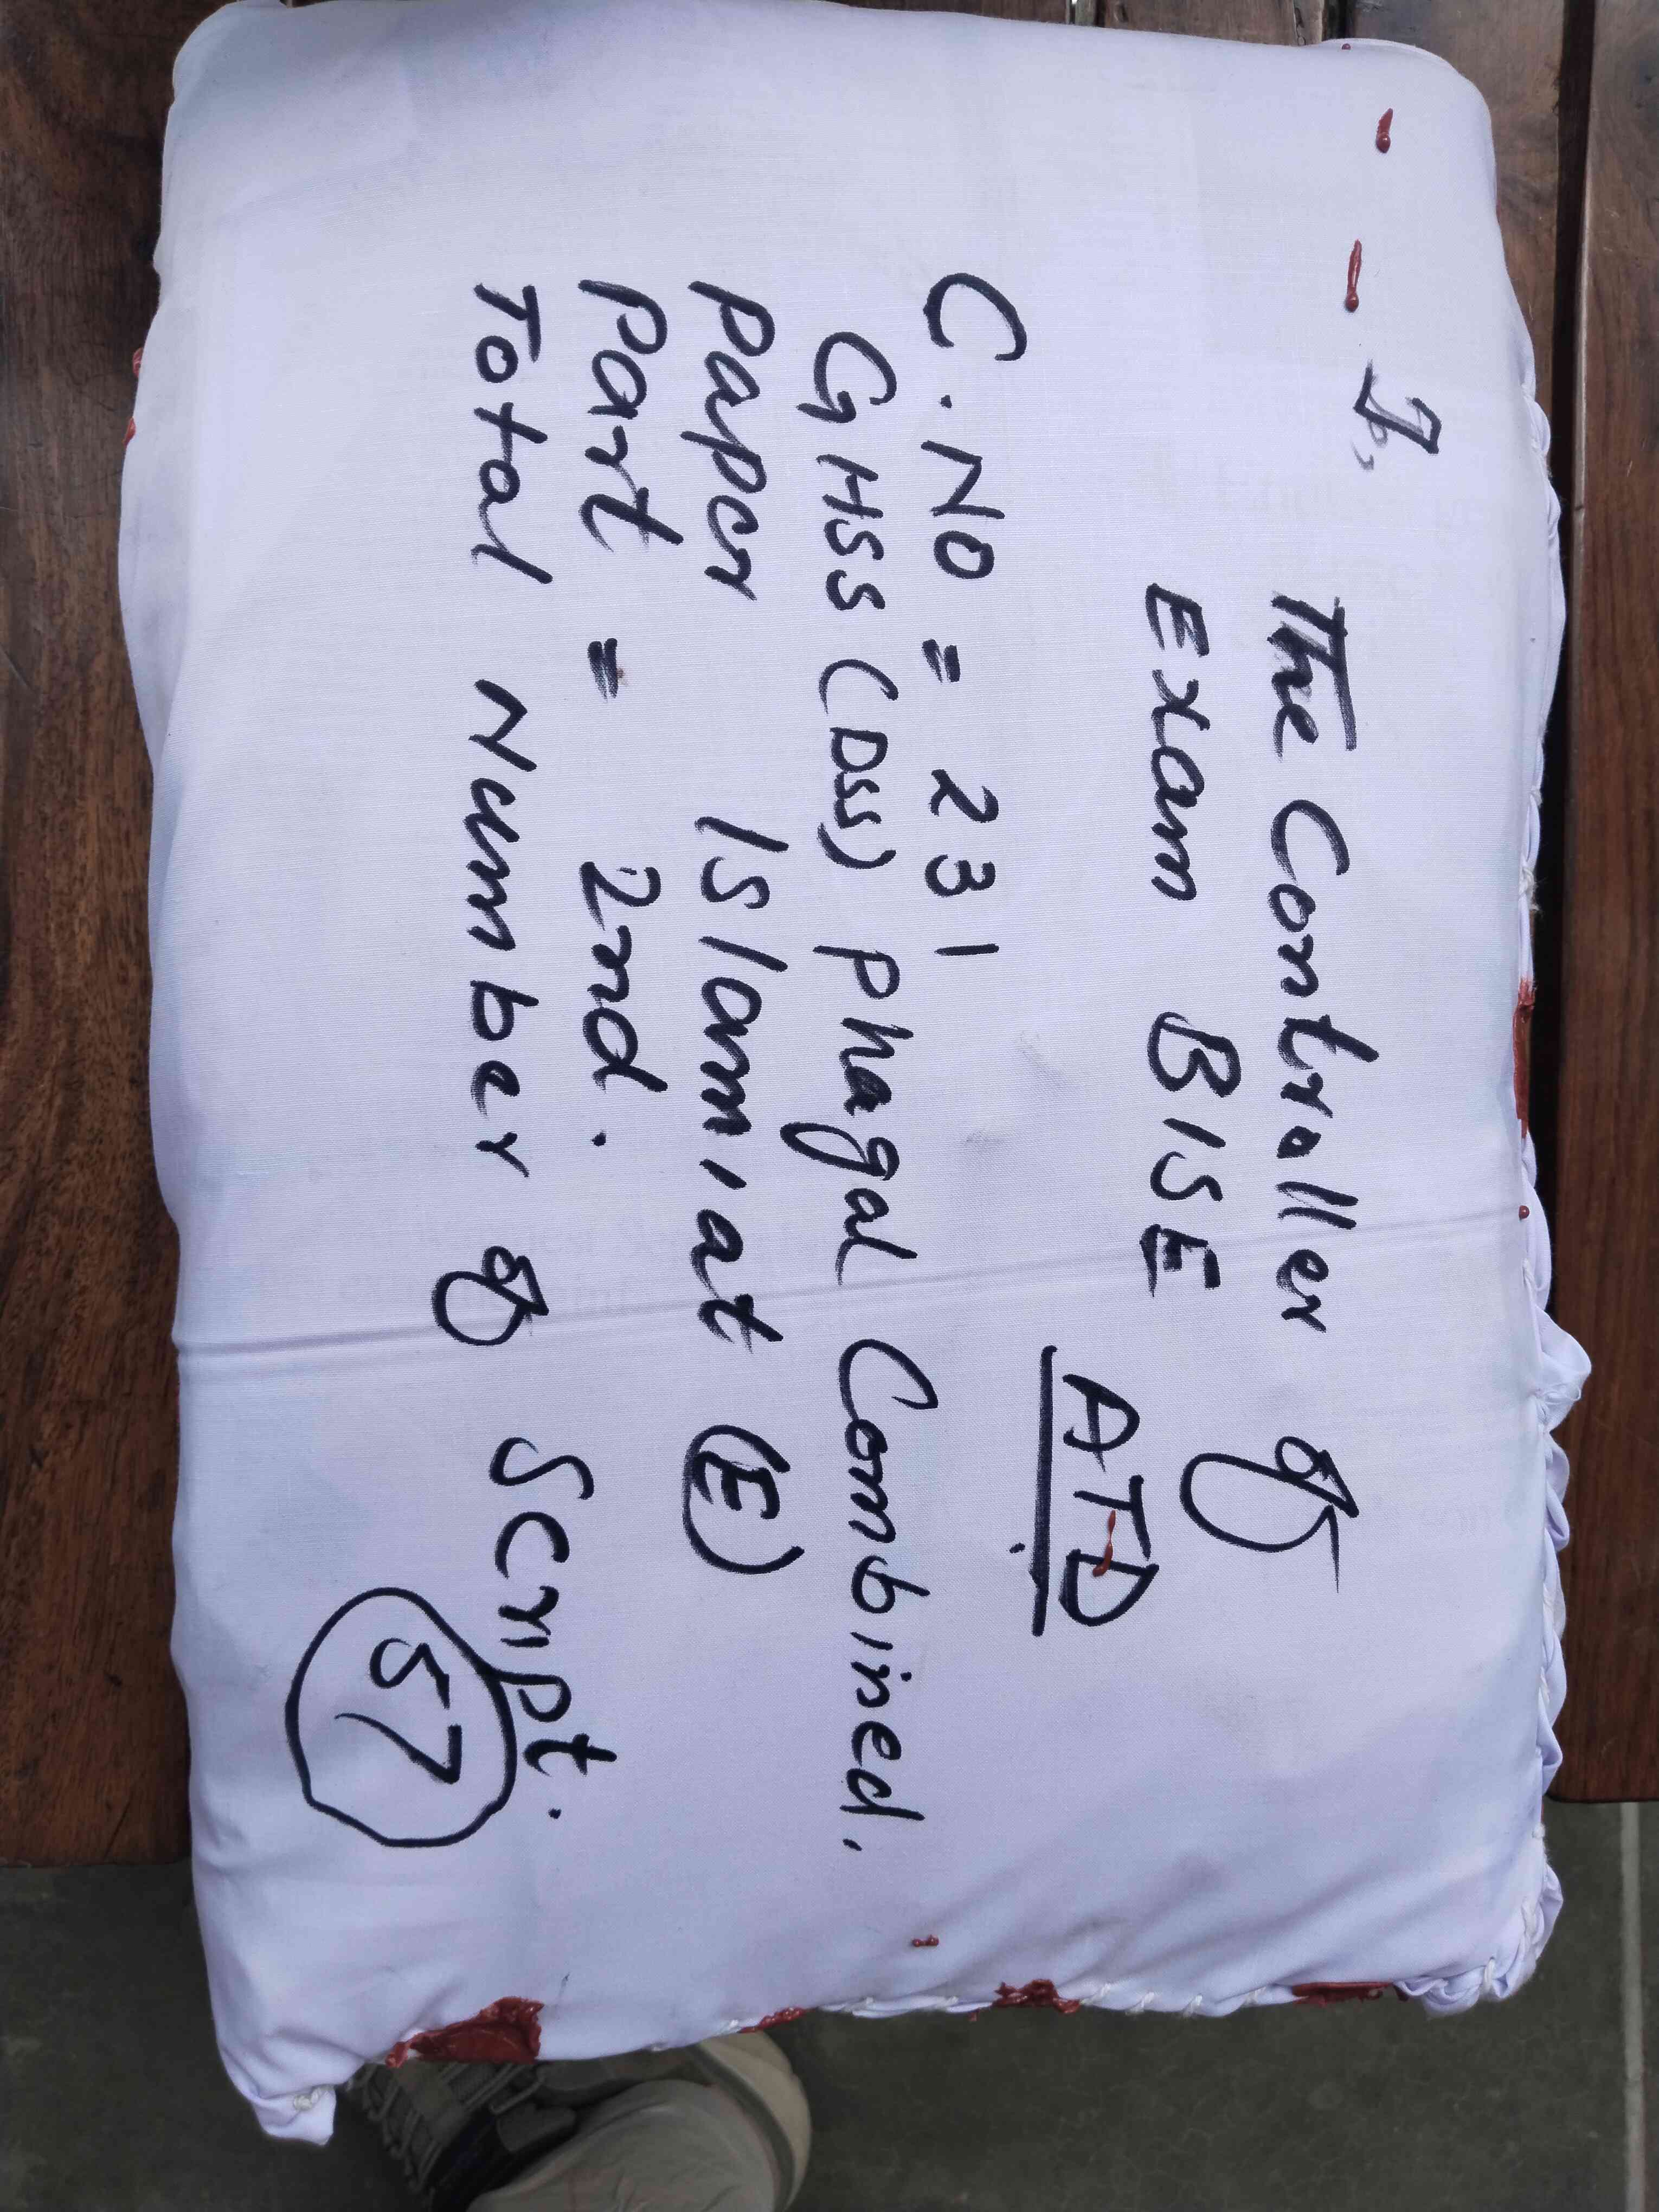 To,
The Controller of
Exam BISE
ATD
C.NO = 231
GHSS (DSS) Phagal Combined.
Paper Islamiat (E)
Part = 2nd.
Total Number of Script.
57